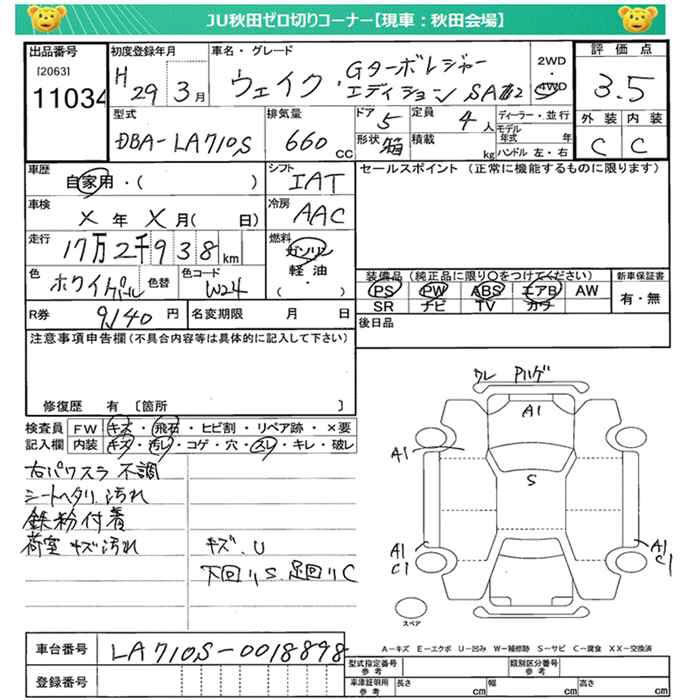 JU秋田ゼロ切りコーナー【現車：秋田会場】
出品番号
[2063]
11034
初度登録年月
H 29 3月
車名・グレード
ウェイク
Gターボレジャー
エディション SAⅢ
2WD
・
4WD
評価点
3.5
外装 内装
C C
型式
DBA-LA710S
排気量
660 cc
ドア
5
形状
箱
定員
4人
積載
kg
ディーラー・並行
モデル年式 年
ハンドル 左・右
車歴
自家用・( )
車検
X年 X月( 日)
走行
17万2千938km
色
ホワイトパール
色替
色コード
W24
シフト
IAT
冷房
AAC
燃料
ガソリン
軽油
( ・ )
セールスポイント (正常に機能するものに限ります)
装備品 (純正品に限り○をつけてください)
PS PW ABS エアB AW
SR ナビ TV カワ
新車保証書
有・無
後日品
R券
9,140円
名変期限 月 日
注意事項申告欄(不具合内容等は具体的に記入して下さい)
修復歴 有 〔箇所 〕
検査員
記入欄
FW キズ・飛石・ヒビ割・リペア跡・×要
内装 キズ・汚レ・コゲ・穴・スレ・キレ・破レ
右パワスラ不調
シートヘタリ、汚れ
鉄粉付着
荷室 キズ汚れ
キズ、U
下回りS、足回りC
ワレ ハゲ
A1
A1
S
A1
C1
A1
C1
スペア
A-キズ E-エクボ U-凹み W-補修跡 S-サビ C-腐食 XX-交換済
車台番号
LA710S-0018898
登録番号
型式指定番号
参考
類別区分番号
参考
車検証明用
参考
長さ cm
幅 cm
高さ cm